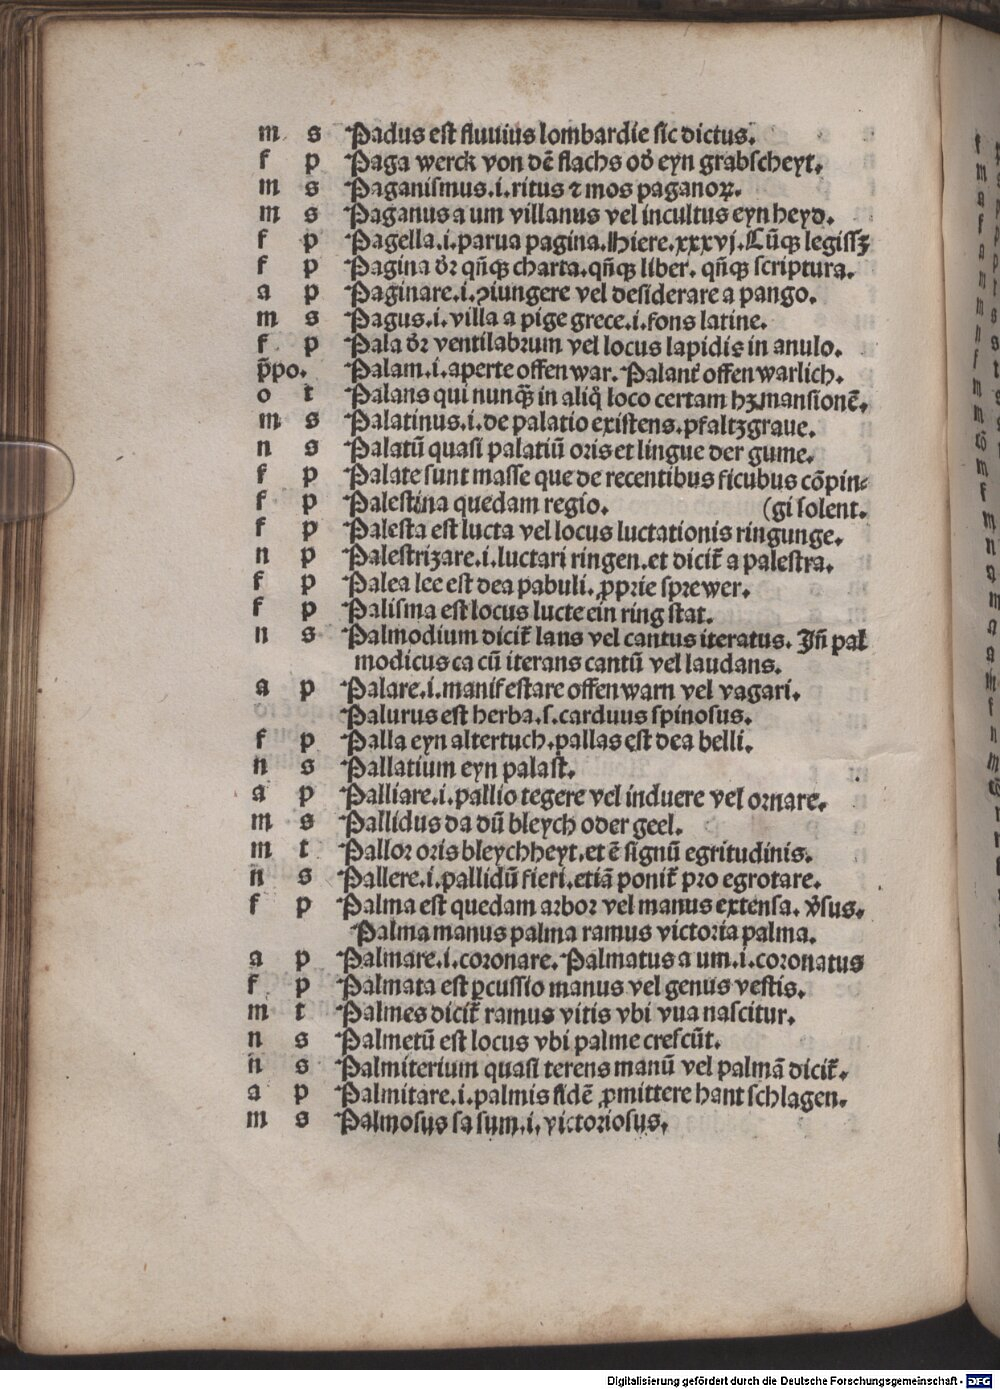 m s Padus est fluuius lombardie sic dictus.
f p Paga werck von dē flachs od̕ eyn grabscheyt.
m s Paganismus.i.ritus ⁊ mos paganoꝝ.
m s Paganus a um villanus vel incultus eyn heyd.
f p Pagella.i.parua pagina.Hiere.xxxvj.Cūqꝫ legissꝫ
f p Pagina d̕r qn̄qꝫ charta.qn̄qꝫ liber. qn̄qꝫ scriptura.
a p Paginare.i.ꝯiungere vel desiderare a pango.
m s Pagus.i.villa a pige grece.i.fons latine.
f p Pala d̕r ventilabrum vel locus lapidis in anulo.
p̄po. Palam.i.aperte offen war. Palant̕ offen warlich.
o t Palans qui nunqᷓ in aliq̊ loco certam hꝫ mansionē.
m s Palatinus.i.de palatio existens.pfaltzgraue.
n s Palatū quasi palatiū oris et lingue der gume.
f p Palate sunt masse que de recentibus ficubus cōpin⸗
f p Palestina quedam regio. (gi solent.
f p Palesta est lucta vel locus luctationis ringunge.
n p Palestrizare.i.luctari ringen.et dicit̕ a palestra.
f p Palea lee est dea pabuli. ꝓprie sprewer.
f p Palisma est locus lucte ein ring stat.
n s Palmodium dicit̕ lans vel cantus iteratus. Jn̄ pal
modicus ca cū iterans cantū vel laudans.
a p Palare.i.manifestare offenwarn vel vagari.
Palurus est herba.s.carduus spinosus.
f p Palla eyn altertuch.pallas est dea belli.
n s Pallatium eyn palast.
a p Palliare.i.pallio tegere vel induere vel ornare.
m s Pallidus da dū bleych oder geel.
m t Pallor oris bleychheyt.et ē signū egritudinis.
n s Pallere.i.pallidū fieri.etiā ponit̕ pro egrotare.
f p Palma est quedam arbor vel manus extensa. v̕sus.
Palma manus palma ramus victoria palma.
a p Palmare.i.coronare. Palmatus a um.i.coronatus
f p Palmata est ꝑcussio manus vel genus vestis.
m t Palmes dicit̕ ramus vitis vbi vua nascitur.
n s Palmetū est locus vbi palme crescūt.
n s Palmiterium quasi terens manū vel palmā dicit̕.
a p Palmitare.i.palmis fidē ꝓmittere hant schlagen.
m s Palmosus sa sum.i.victoriosus.
Digitalisierung gefördert durch die Deutsche Forschungsgemeinschaft - DFG